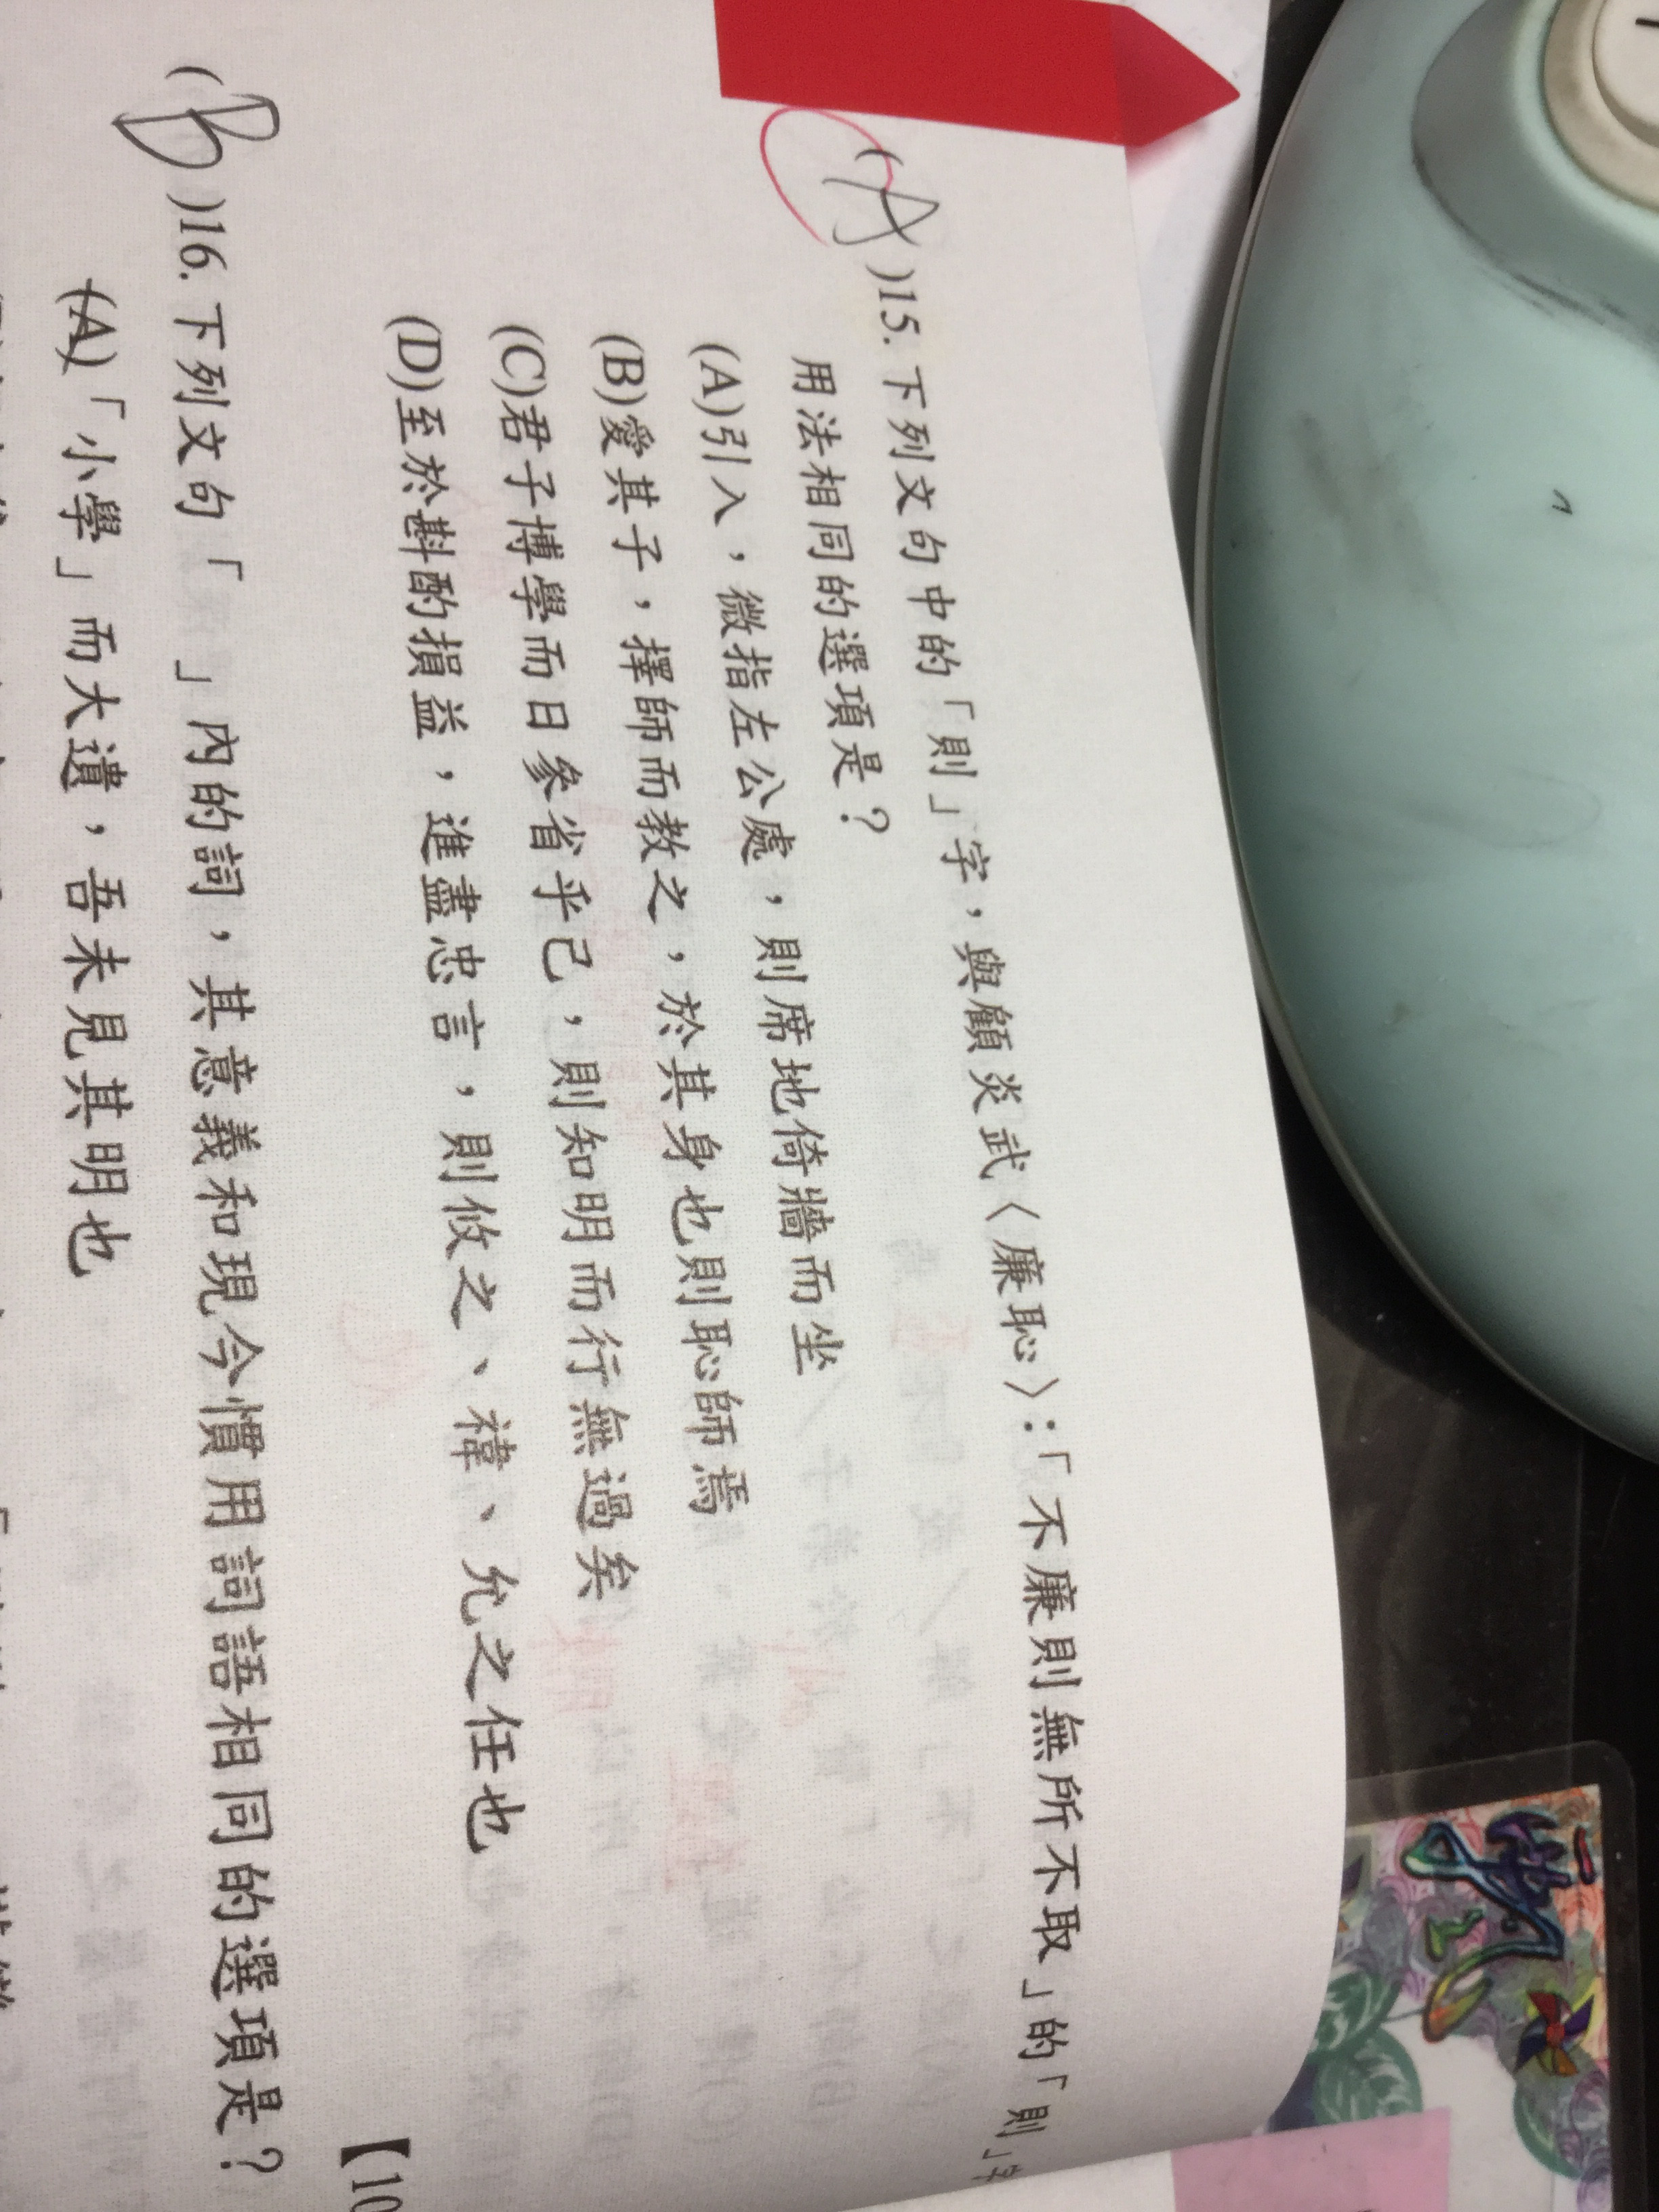 (A)15. 下列文句中的「則」字，與顧炎武〈廉恥〉：「不廉則無所不取」的「則」字
用法相同的選項是？
(A)引入，微指左公處，則席地倚牆而坐
(B)愛其子，擇師而教之，於其身也則恥師焉
(C)君子博學而日參省乎己，則知明而行無過矣
(D)至於斟酌損益，進盡忠言，則攸之、褘、允之任也
【10
(B)16. 下列文句「　」內的詞，其意義和現今慣用詞語相同的選項是？
(A)「小學」而大遺，吾未見其明也